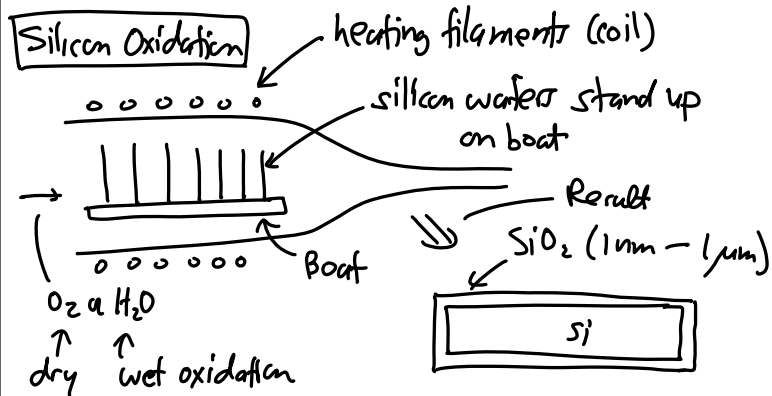 Silicon Oxidation
heating filaments (coil)
silicon wafers stand up
on boat
Result
SiO₂ (1nm – 1μm)
Boat
Si
O₂ or H₂O
dry wet oxidation